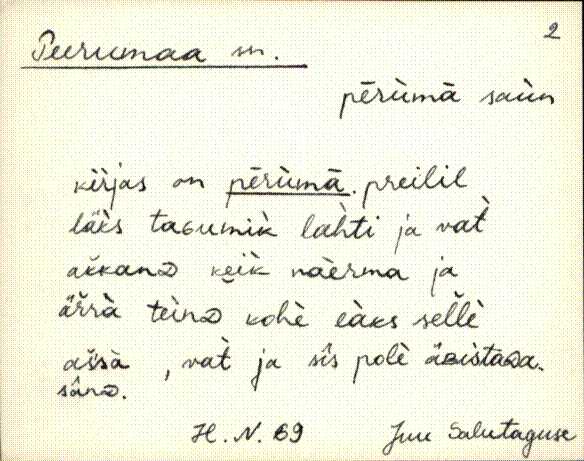 2
Peerumaa m.
pērùmā saùn
kìrjas on pērùmā. preilil
läk̀s taɢumik̀ lah̀ti ja vat̀
ak̆kanD keìk̀ naèrma ja
är̆rà teìnD kohè eàks sel̆lè
as̆sà, vat̀ ja sîs polè äʙistaDa.
sânD.
H. N. 69 Juu Salutaguse